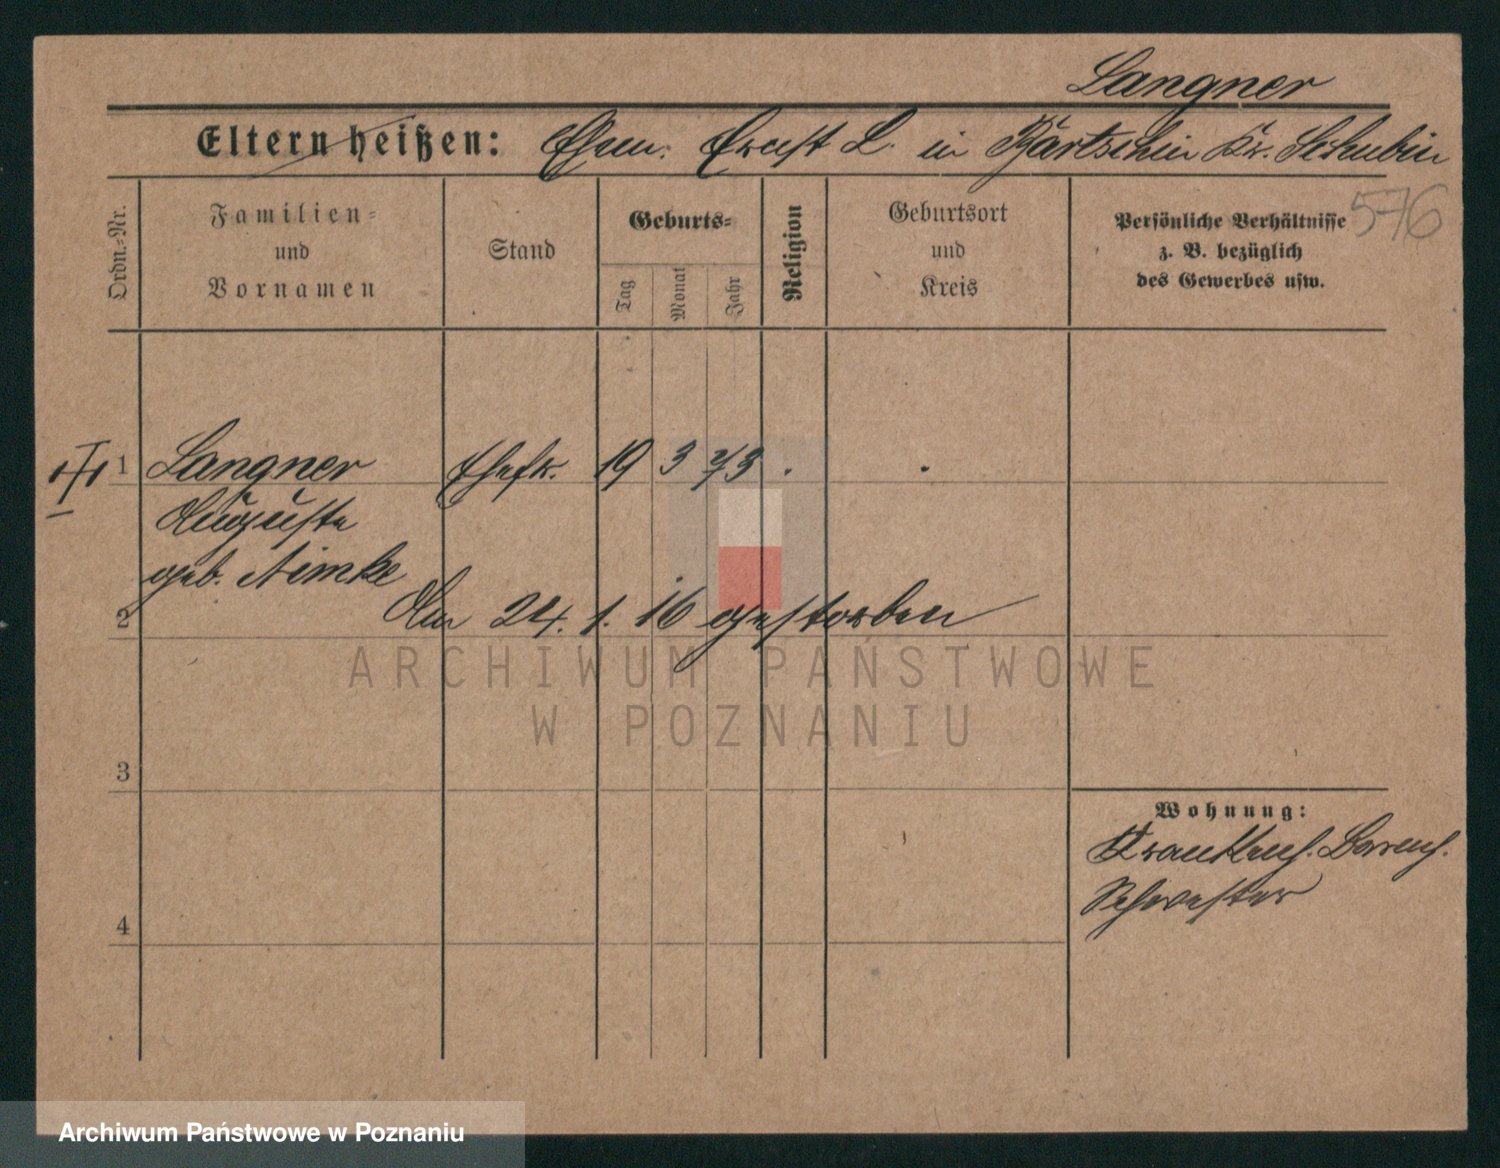 Langner
Eltern heißen: Ehem. Ernst L. in Bartschin Kr. Schubin
576
Ordn.-Nr.
Familien-
und
Vornamen
Stand
Geburts-
Tag
Monat
Jahr
Religion
Geburtsort
und
Kreis
Persönliche Verhältnisse
z. B. bezüglich
des Gewerbes usw.
1 Langner Ehefr. 19 3 73
Auguste
geb. Nimke
2 Am 24. 1. 16 gestorben
ARCHIWUM PAŃSTWOWE
W POZNANIU
3
Wohnung:
Krankenh.
Schwester
4
Archiwum Państwowe w Poznaniu